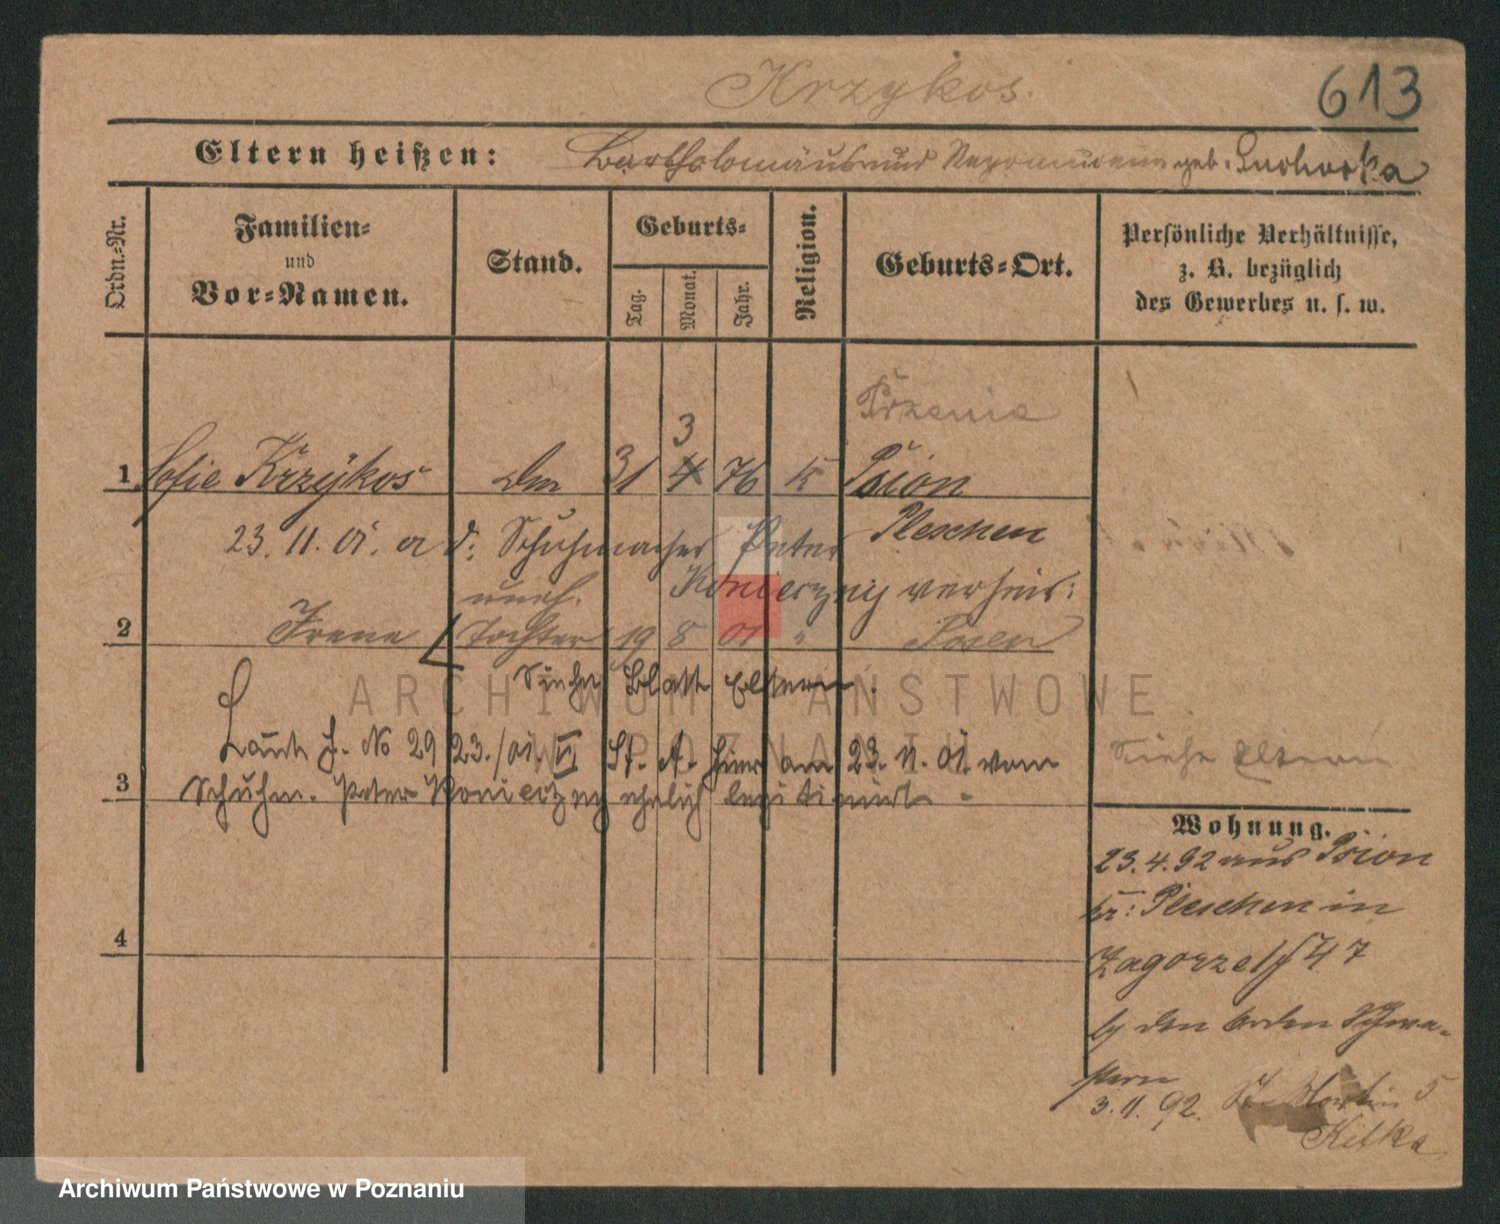 Krzykos.
613
Eltern heißen: Bartholomäus und Nepomucena geb. Suchorka
Ordn.-Nr.
Familien-
und
Vor-Namen.
Stand.
Geburts-
Tag.
Monat.
Jahr.
Religion.
Geburts-Ort.
Persönliche Verhältnisse,
z. B. bezüglich
des Gewerbes u. s. w.
3
1 Sofie Krzÿkos 31 4 76 K Psion
23. 11. 01. d: Schuhmacher Peter Pleschen
uneh. Konieczny verheir:
2 Irene Tochter 19 8 01 " Posen
Siehe Blatt Eltern.
Laut J. No 29 23./01. VI St. A. hier am 23. 11. 01. vom
3 Schuhm. Peter Konieczny ehelich legitimirt -
Siehe Eltern
Wohnung.
23. 4. 92 aus Psion
Kr: Pleschen in
4
Zagorze 4/7
by den Orden Schwe-
stern
3. 11. 92. St. Martin 5
Kilka
ARCHIWUM PAŃSTWOWE
W POZNANIU
Archiwum Państwowe w Poznaniu